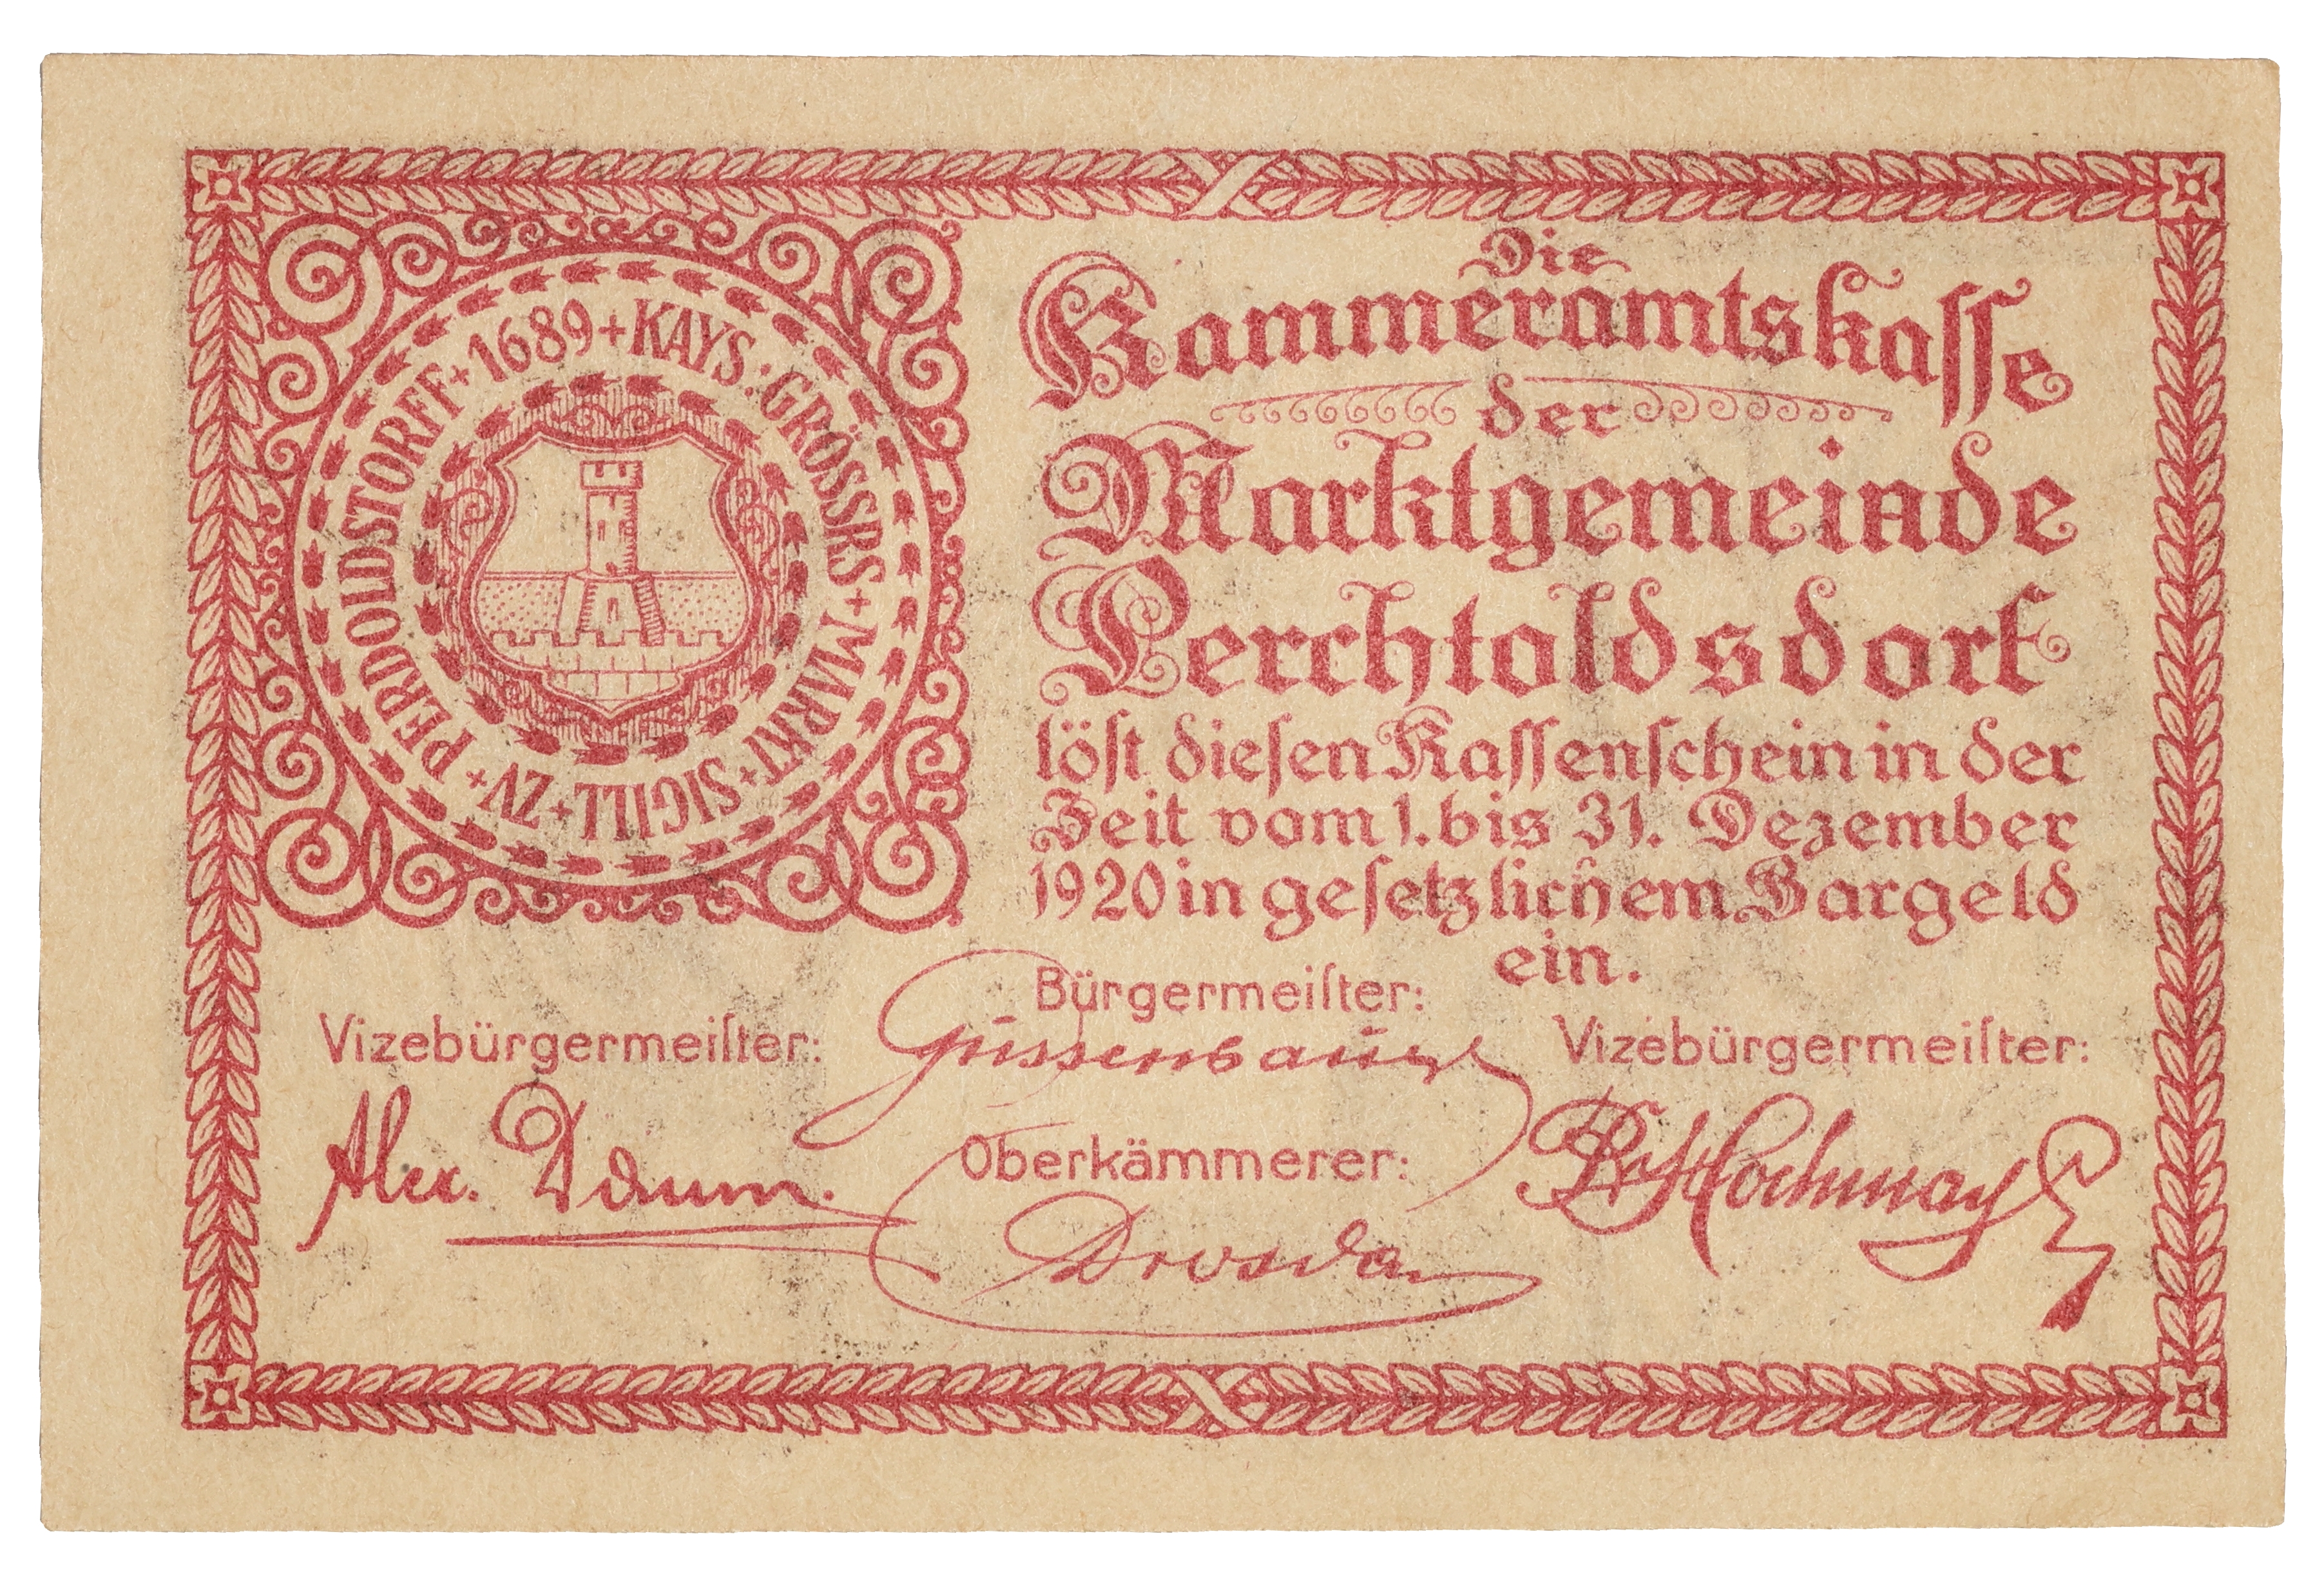 1689 + KAYS: GRÖSSRS + MARKT + SIGILL + ZV + PERDOLDSTORFF +
Die
Kammeramtskaſſe
der
Marktgemeinde
Perchtoldsdorf
löſt dieſen Kaſſenſchein in der
Zeit vom 1. bis 31. Dezember
1920 in geſetzlichem Bargeld
ein.
Bürgermeiſter:
Gussenbauer
Vizebürgermeiſter:
Alex.
Vizebürgermeiſter:
Hochmay
Oberkämmerer: